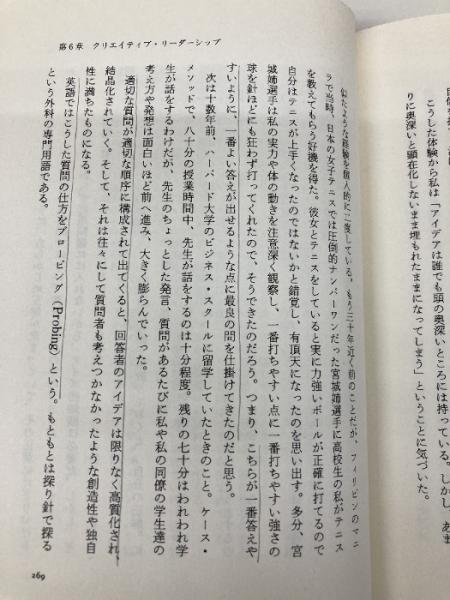 自体
こうした体験から私は「アイデアは誰でも頭の奥深いところには持っている。しかし、あま
りに奥深いと顕在化しないまま埋もれたままになってしまう」ということに気づいた。
第6章 クリエイティブ・リーダーシップ
似たような経験を個人的に二度している。もう三十年近く前のことだが、フィリピンのマニ
ラで当時、日本の女子テニスでは圧倒的ナンバーワンだった宮城姉選手に高校生の私がテニス
を教えてもらう好機を得た。彼女とテニスをしていると実に力強いボールが正確に打てるので
自分はテニスが上手くなったのではないかと錯覚し、有頂天になったのを思い出す。多分、宮
城姉選手は私の実力や体の動きを注意深く観察し、一番打ちやすい点に一番打ちやすい強さの
球を針ほどにも狂わず打ってくれたので、そうできたのだろう。つまり、こちらが一番答えや
すいように、一番よい答えが出せるような点に最良の問を仕掛けてきたのだと思う。
次は十数年前、ハーバード大学のビジネス・スクールに留学していたときのこと。ケース・
メソッドで、八十分の授業時間中、先生が話をするのは十分程度。残りの七十分はわれわれ学
生が話をするわけだが、先生のちょっとした発言、質問があるたびに私や私の同僚の学生達の
考え方や発想は面白いほど前へ進み、大きく膨らんでいった。
適切な質問が適切な順序に構成されて出てくると、回答者のアイデアは限りなく高質化され、
結晶化されていく。そして、それは往々にして質問者も考えつかなかったような創造性や独自
性に満ちたものになる。
英語ではこうした質問の仕方をプロービング（Probing）という。もともとは探り針で探る
という外科の専門用語である。
269